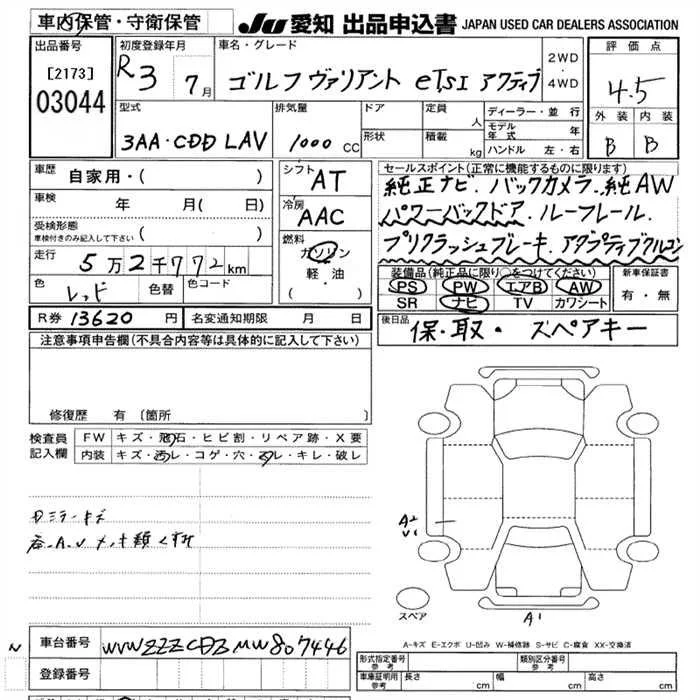 車内保管・守衛保管
JU 愛知 出品申込書 JAPAN USED CAR DEALERS ASSOCIATION
出品番号
[2173]
03044
初度登録年月
R3 7月
車名・グレード
ゴルフ ヴァリアント eTSI アクティブ
2WD
・
4WD
評価点
4.5
外装 内装
B B
型式
3AA・CDD LAV
排気量
1000 CC
ドア
形状
定員
人
積載
kg
ディーラー・並行
モデル年式 年
ハンドル 左・右
車歴
自家用・( )
車検
年 月( 日)
受検形態
車検付きのみ記入して下さい ( )
走行
5万2千772km
色
レッド
色替
色コード
シフト
AT
冷房
AAC
燃料
ガソリン
軽・油
( )
セールスポイント(正常に機能するものに限ります)
純正ナビ.バックカメラ.純AW
パワーバックドア.ルーフレール.
プリクラッシュブレーキ.アダプティブクルコン
装備品(純正品に限り○をつけてください)
PS PW エアB AW
SR ナビ TV カワシート
新車保証書
有・無
R券 13620 円
名変通知期限 月 日
後日品
保・取・スペアキー
注意事項申告欄(不具合内容等は具体的に記入して下さい)
修復歴 有 〔箇所 〕
検査員
記入欄
FW キズ・飛石・ヒビ割・リペア跡・X要
内装 キズ・汚レ・コゲ・穴・スレ・キレ・破レ
ミラーキズ
A2
A1
スペア
A-キズ E-エクボ U-凹み W-補修跡 S-サビ C-腐食 XX-交換済
N
車台番号
WVWZZZCDZMW807446
登録番号
形式指定番号
参考
類別区分番号
参考
車庫証明用
参考
長さ cm 幅 cm 高さ cm